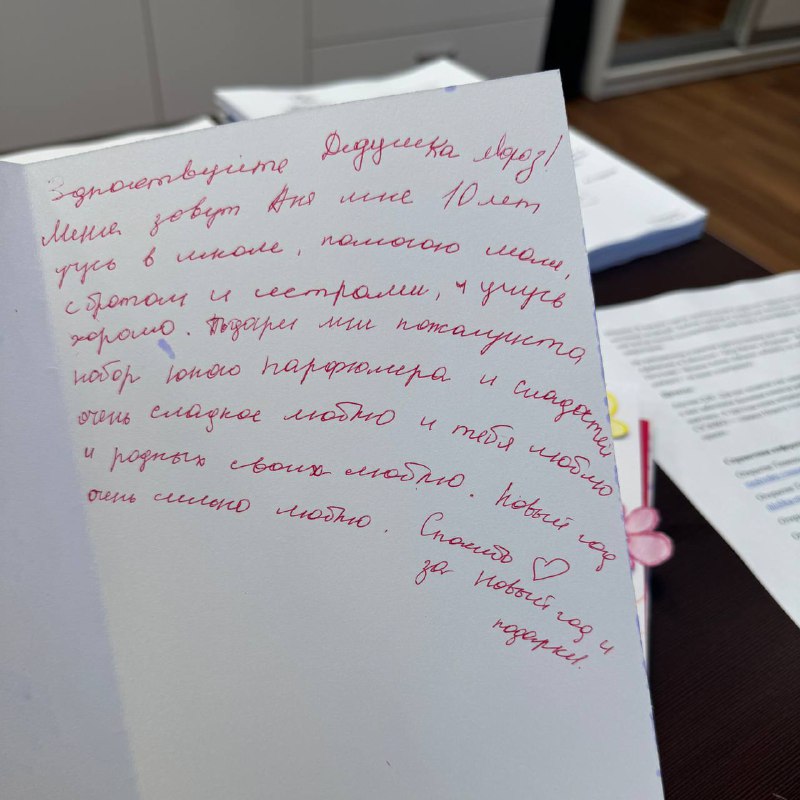 Здравствуйте Дедушка Мороз!
Меня зовут Аня мне 10 лет
учусь в школе, помогаю маме,
с братом и сестрами, и учусь
хорошо. Подари мне пожалуйста
набор юного парфюмера и сладостей
очень сладкое люблю и тебя люблю
и родных своих люблю. Новый год
очень сильно люблю. Спасибо ♡
за Новый год и
подарки.